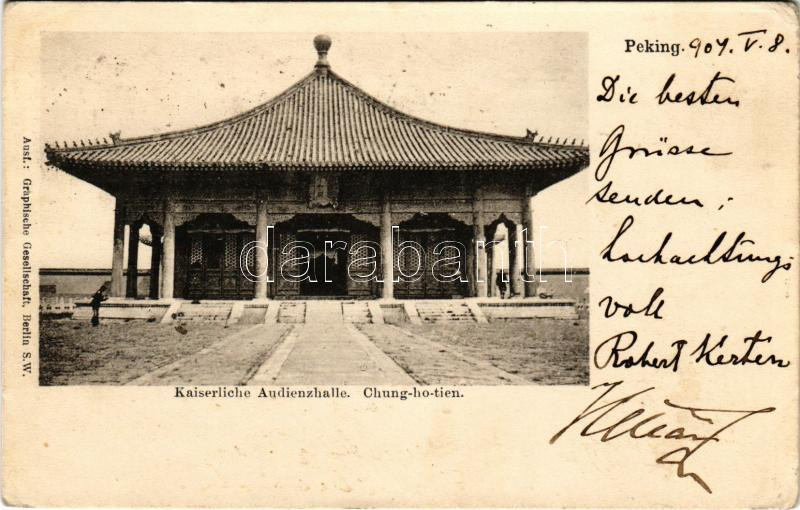 Peking. 904. V. 8.
Die besten
Grüsse
senden,
hochachtungs
voll
Robert Kerten
Kaiserliche Audienzhalle. Chung-ho-tien.
Ausf.: Graphische Gesellschaft, Berlin S.W.
darabanth